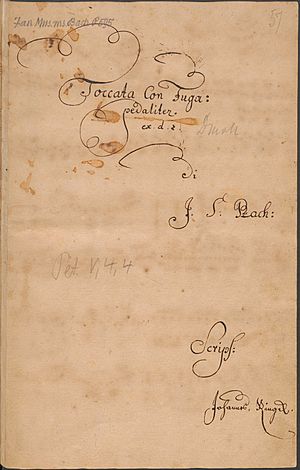 Mus. ms. Bach P 595
Toccata Con Fuga:
pedaliter.
ex. d. #.
di
J. S. Bach:
Pet. V, 4, 4
Scrips:
Johannes Ringk.